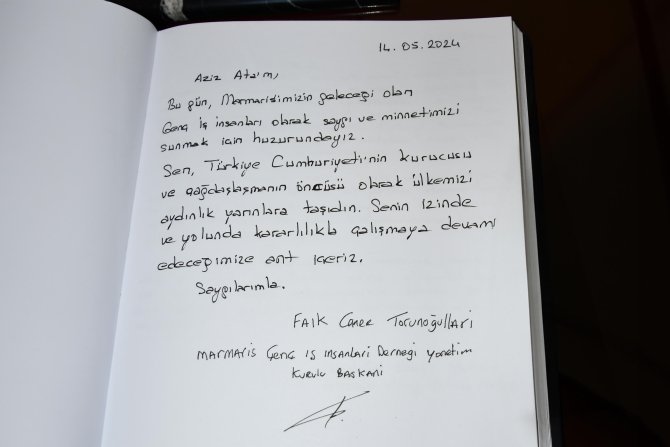 14.05.2024
Aziz Ata'm,
Bu gün, Marmarisimizin geleceği olan
Genç İş insanları olarak saygı ve minnetimizi
sunmak için huzurundayız.
Sen, Türkiye Cumhuriyeti'nin kurucusu
ve çağdaşlaşmanın öncüsü olarak ülkemizi
aydınlık yarınlara taşıdın. Senin izinde
ve yolunda kararlılıkla çalışmaya devam
edeceğimize ant içeriz.
Saygılarımla.
FAİK Caner Torunoğulları
MARMARİS Genç iş insanları Derneği yönetim
kurulu BAŞKANI